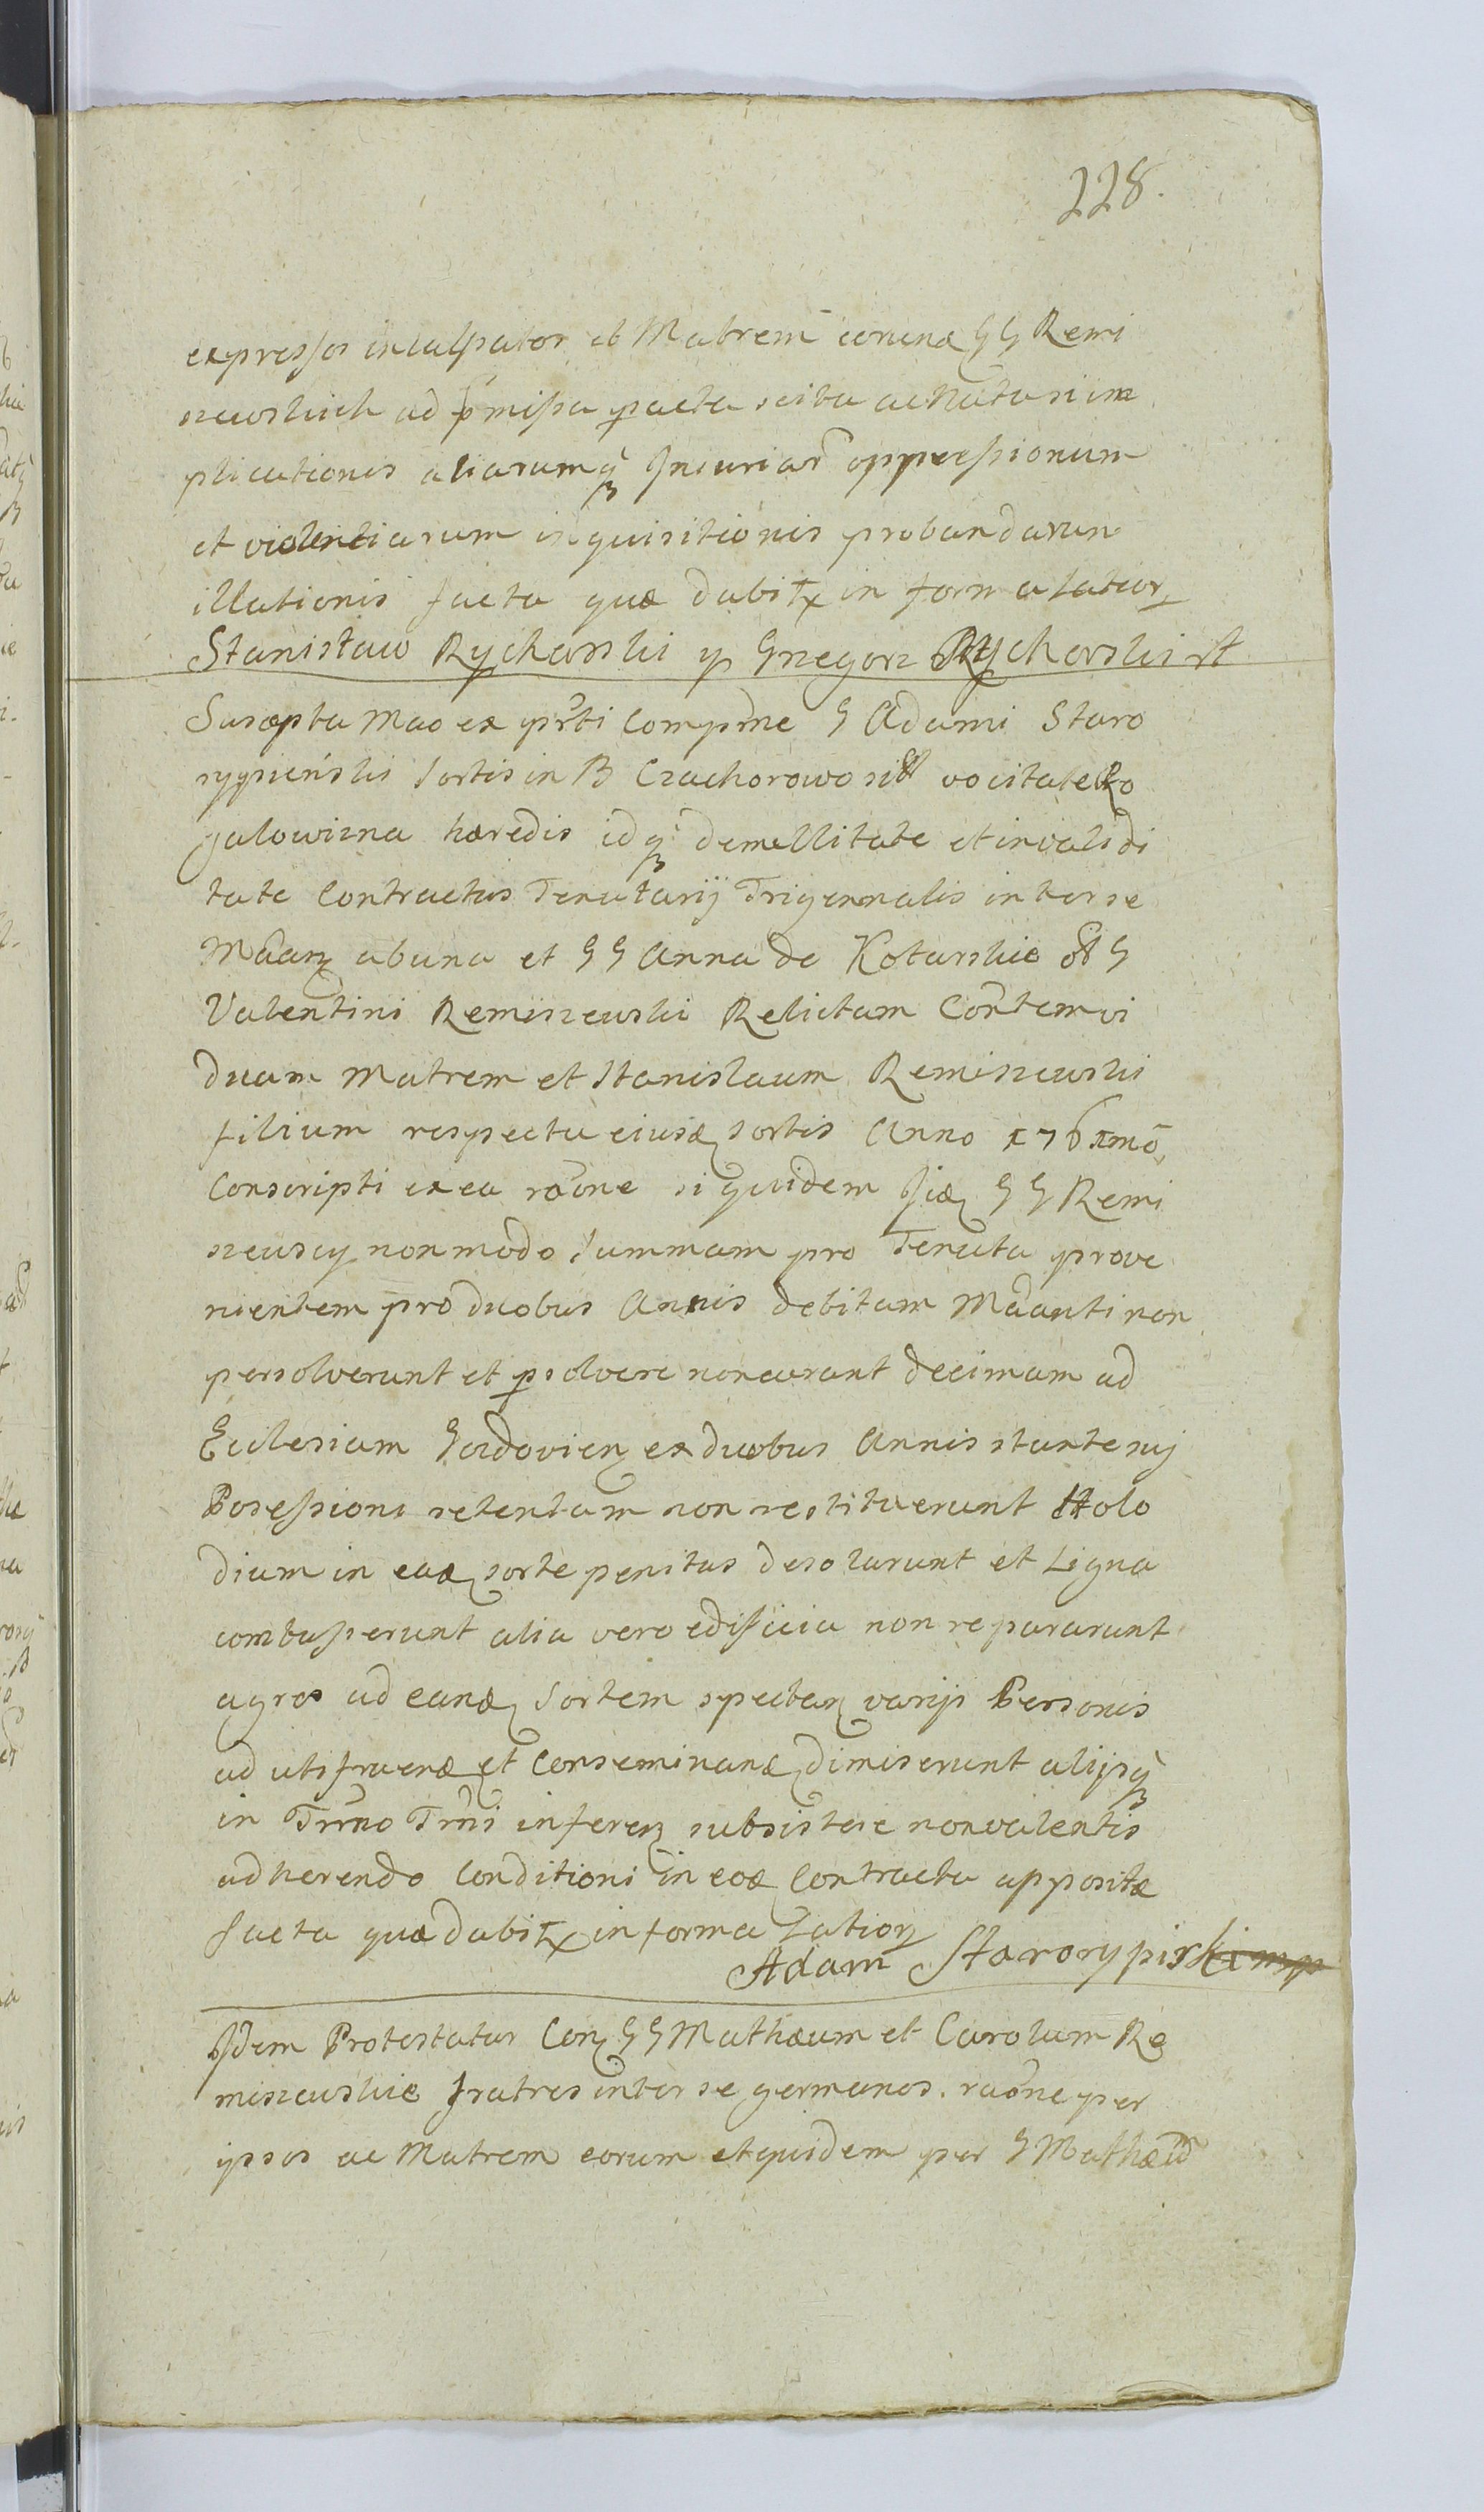 228.
expressos inculpatos et Matrem eorund GG Remi
szewskich ad p̄missa p̱acta scita ac Nata sim
plicationis aliarumq̃ Iniuriar̃ oppressionum
et violentiarum inquisitionis probandarum
illationis facta quæ dabitr in forma latiori
Stanisław Rycharski y Grzegorz Rycharski
Suscepta Mao ex pr̃ti Compr̃ne G Adami Staro
rypienski Sortis in B Czachorowo vocitatæ Ro
galowizna hæredis idq̃ de nullitate et invalidi
tate Contractus Tenutarij Trigennalis inter se
Mãan ab una et GG Anna de Kotarskie G
Valentini Remiszewski Relictam Cõrtem vi
duam Matrem et Stanislaum Remiszewski
filium respectu eiusd sortis Anno 1761mõ
Conscripti ex ea raõne siquidem Iid GG Remi
szewscy non modo Summam pro Tenuta prove
nientem pro duobus Annis debitam Mãanti non
persolverunt et p̱solvere non curant decimam ad
Eclesiam ex duobus Annis stante suj
Posessione retentam non restituerunt Holo
dium in ead sorte penitus desolarunt et Ligna
combusserunt alia vero edificia non repararunt
agros ad eand Sortem spectan varijs Personis
ad utifruend et conseminand dimiserunt alijsq̃
in Tr̃mo Tr̃mi inferen subsistere non valentis
adherendo Conditioni in eod Contractu appositæ
facta quæ dabitr in forma latiori
Adam Starorypiski mp
Idem Protestatur Con GG Mathæum et Carolum Re
miszewskie fratres inter se germanos raõne per
ipsos ac Matrem eorum et quidem per G Mathæũ